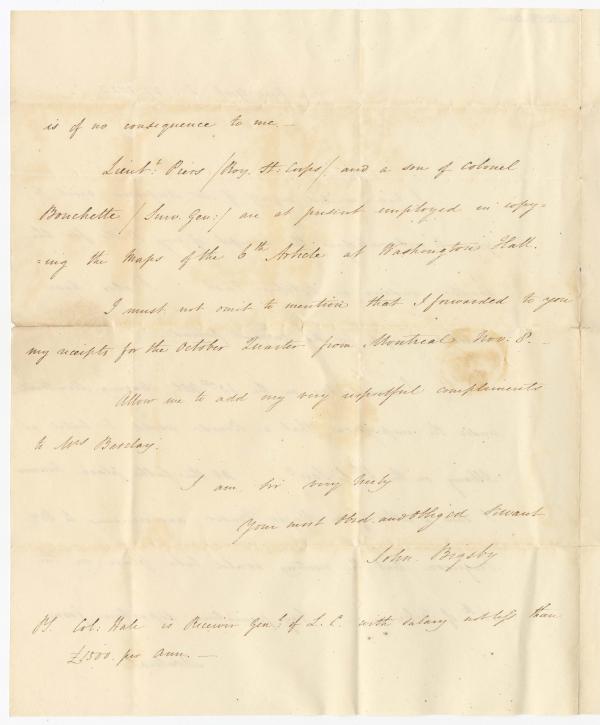 is of no consequence to me. —
Lieut.t Piers /Roy. St: Corps/ and a son of Colonel
Bouchette /Surv. Gen:/ are at present employed in copy=
=ing the Maps of the 6th Article at Washington Hall.
I must not omit to mention that I forwarded to you
my receipts for the October Quarter from Montreal Nov. 8. —
Allow me to add my very respectful compliments
to Mrs Barclay.
I am Sir very truly
Your most Obed. and Obliged Servant
John Bigsby
PS. Col: Hale is Receiver Gen.l of L. C. with salary not less than
£1500. per Ann. —